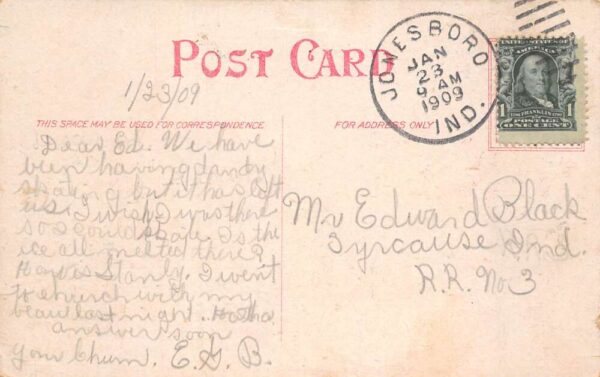 POST CARD
JONESBORO
JAN
23
9 AM
1909
IND.
UNITED STATES OF AMERICA
FRANKLIN
POSTAGE
ONE CENT
1 1
1/23/09
THIS SPACE MAY BE USED FOR CORRESPONDENCE
FOR ADDRESS ONLY
Dear Ed. We have
been having dandy
skating but it has left
us. I wish I was there
so I could skate. Is the
ice all melted there?
How is Stanly. I went
to church with my
beau last night. Ha Ha.
answer soon
your Chum. E. G. B.
Mr Edward Black
Syrcause Ind.
R.R. No. 3